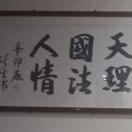 天理
國法
人情
辛卯春